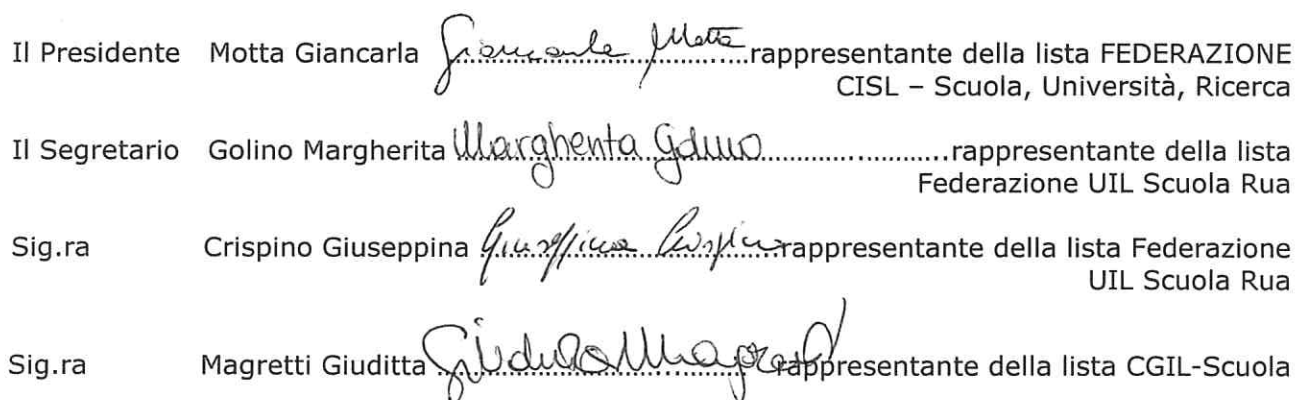 Il Presidente Motta Giancarla Giancarla Motta rappresentante della lista FEDERAZIONE
CISL – Scuola, Università, Ricerca
Il Segretario Golino Margherita Margherita Golino rappresentante della lista
Federazione UIL Scuola Rua
Sig.ra Crispino Giuseppina Giuseppina Crispino rappresentante della lista Federazione
UIL Scuola Rua
Sig.ra Magretti Giuditta Giuditta Magretti rappresentante della lista CGIL-Scuola